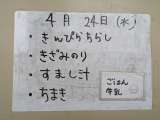 4月24日(水)
・きんぴらちらし
・きざみのり
・すまし汁
・ちまき
ごはん
牛乳